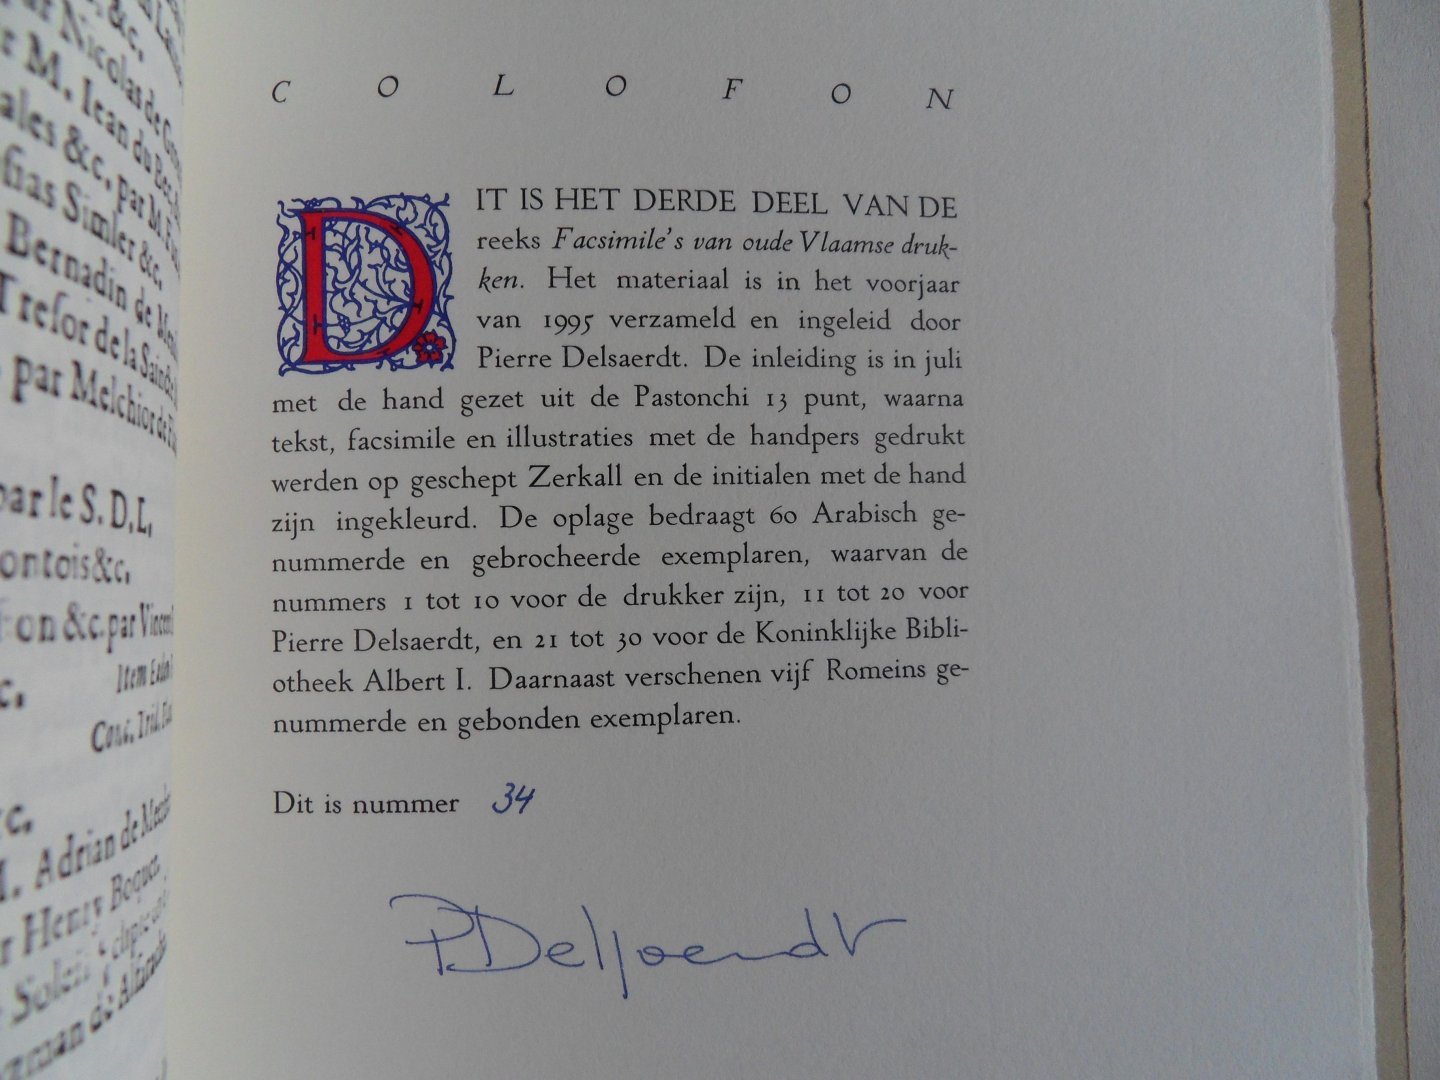 par Nicolas de
M. Iean du
ales &c. par M.
sias Simler &c.
Bernadin de
Tresor de la
par Melchior de
par le S. D. L.
ontois &c.
on &c. par
Item
Conc.
&c.
Adrian de
Henry
C O L O F O N
DIT IS HET DERDE DEEL VAN DE
reeks Facsimile's van oude Vlaamse druk-
ken. Het materiaal is in het voorjaar
van 1995 verzameld en ingeleid door
Pierre Delsaerdt. De inleiding is in juli
met de hand gezet uit de Pastonchi 13 punt, waarna
tekst, facsimile en illustraties met de handpers gedrukt
werden op geschept Zerkall en de initialen met de hand
zijn ingekleurd. De oplage bedraagt 60 Arabisch ge-
nummerde en gebrocheerde exemplaren, waarvan de
nummers 1 tot 10 voor de drukker zijn, 11 tot 20 voor
Pierre Delsaerdt, en 21 tot 30 voor de Koninklijke Bibli-
otheek Albert I. Daarnaast verschenen vijf Romeins ge-
nummerde en gebonden exemplaren.
Dit is nummer 34
P. Delsaerdt